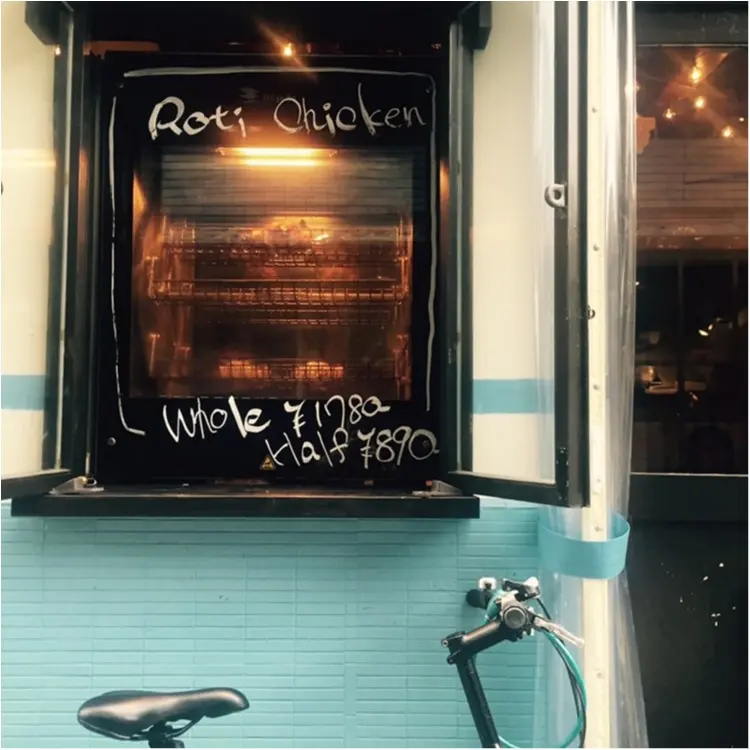 Roti Chicken
Whole ¥1780
Half ¥890